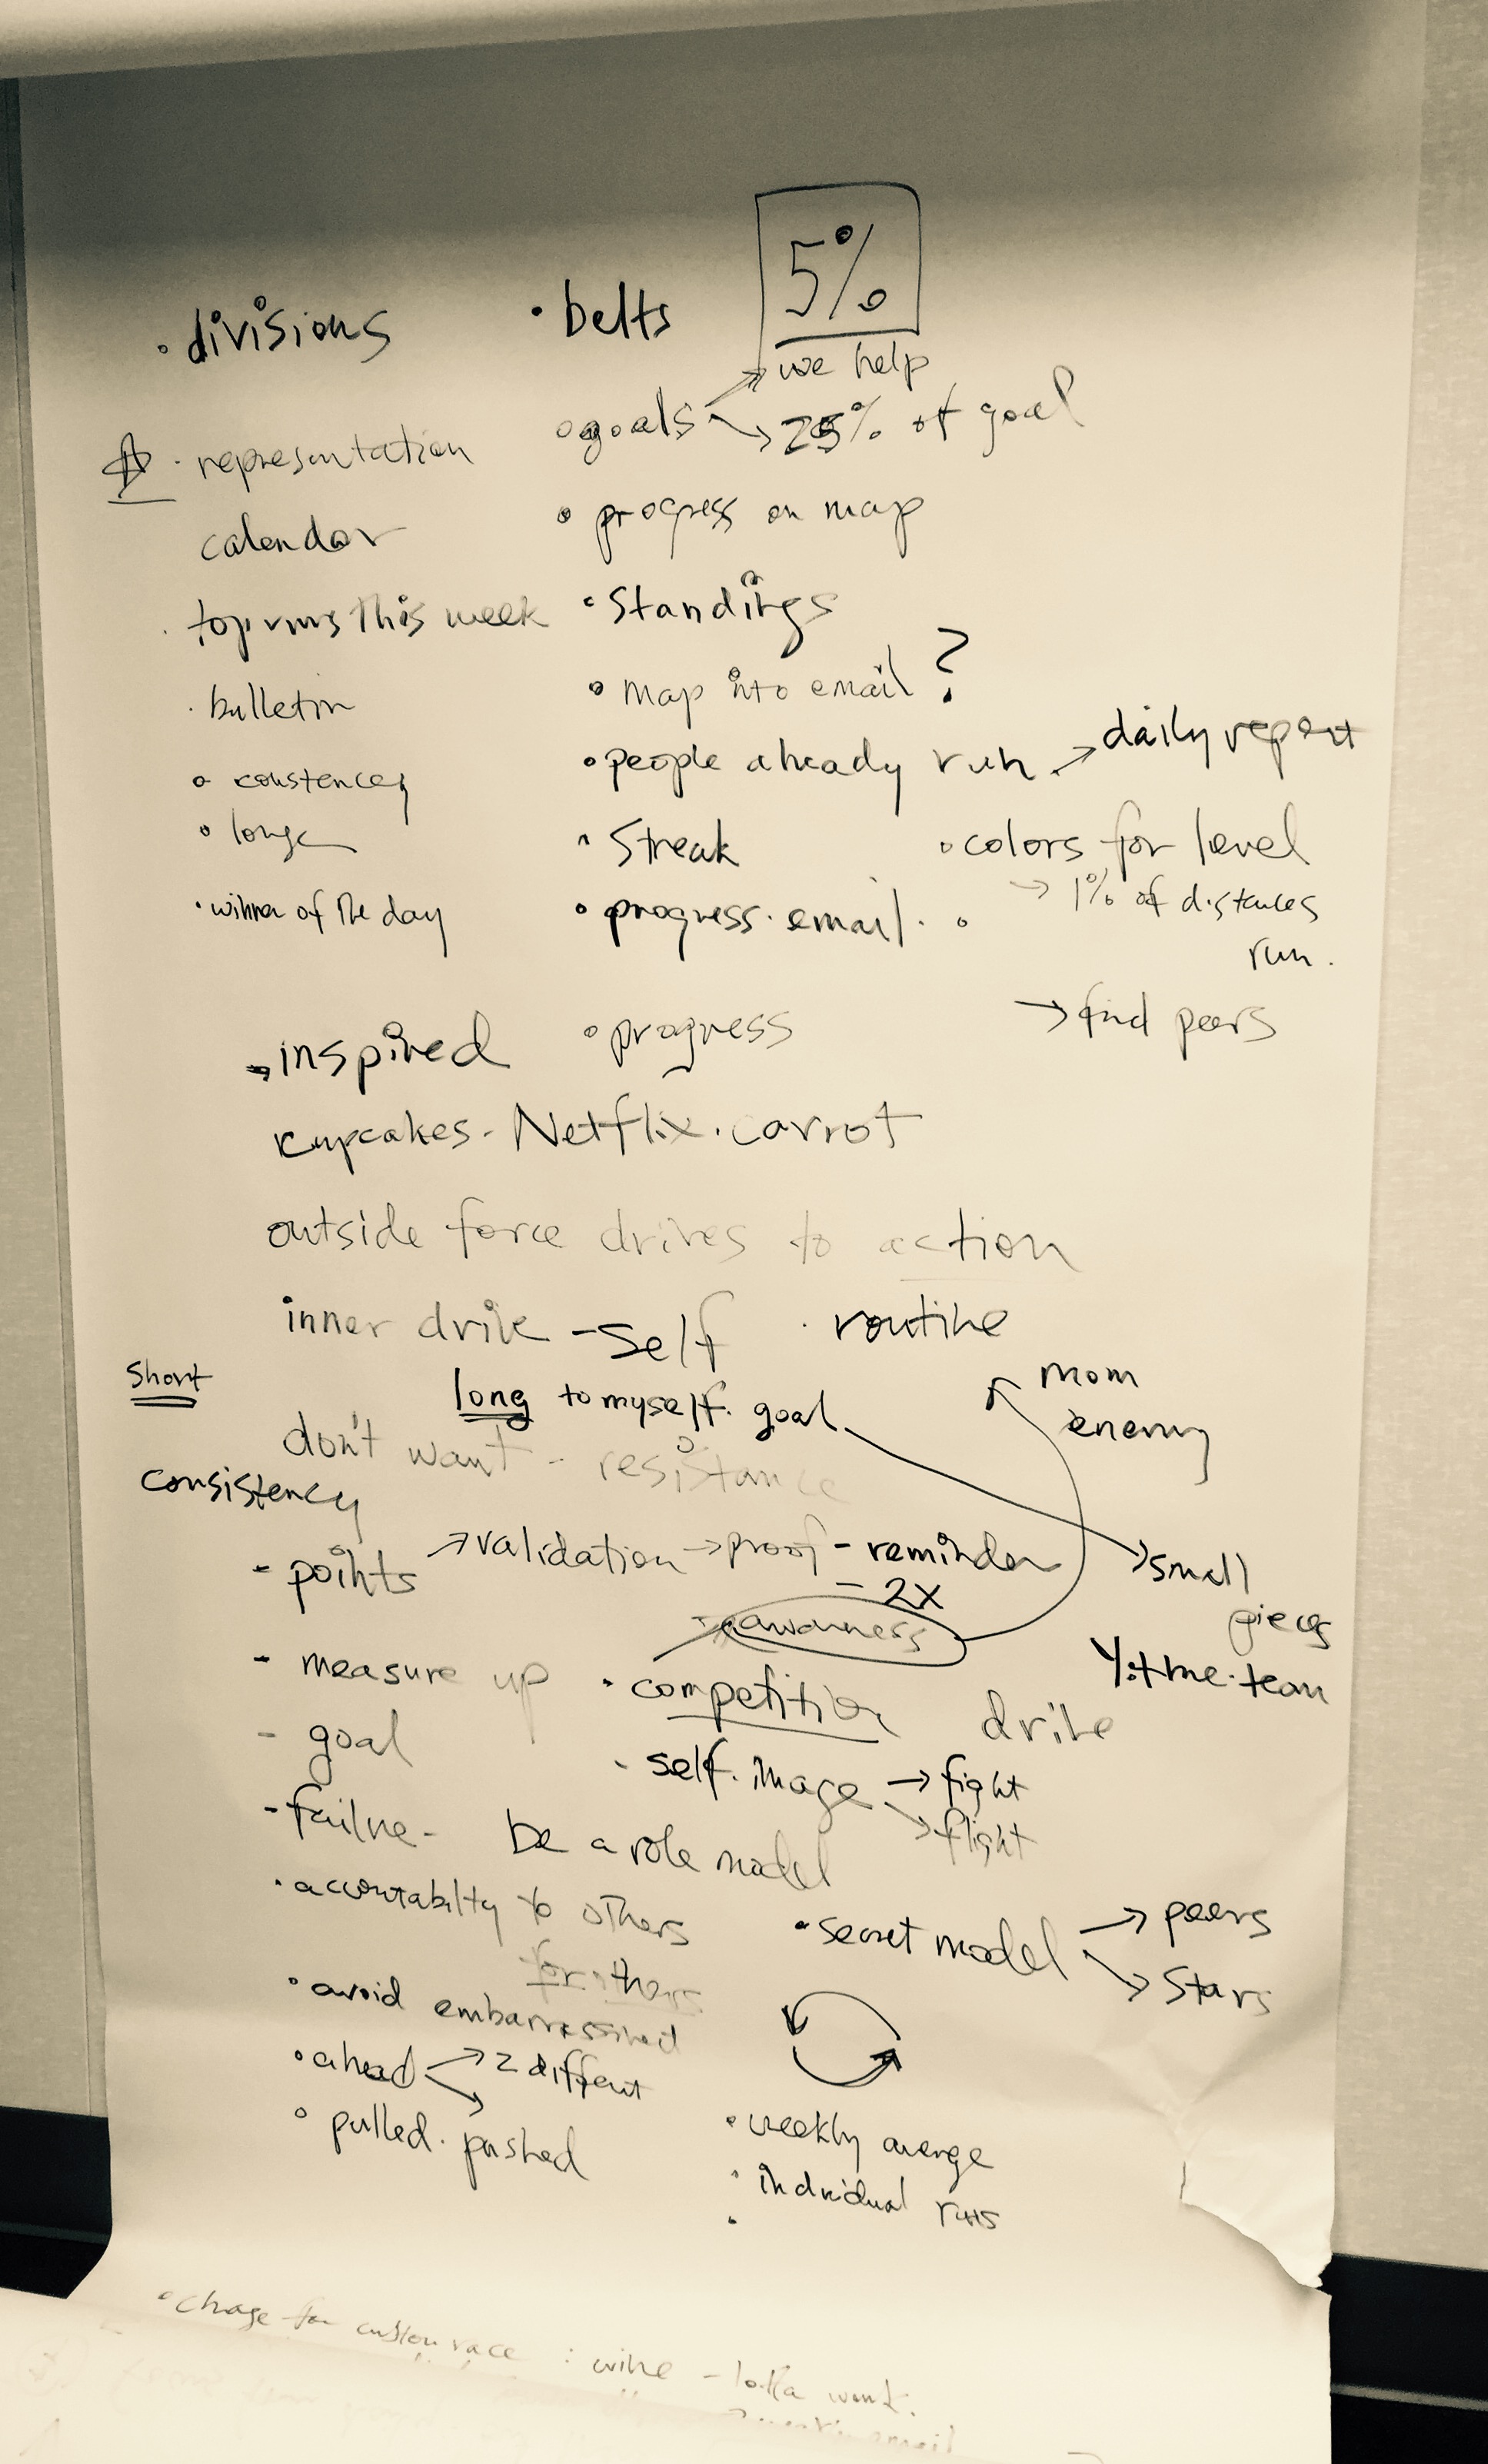 • divisions
• belts
5%
we help
• goals → 25% of goal
• representation
calendar
• progress on map
top runs this week
• Standings
• bulletin
• map into email ?
• people already run → daily report
• constencey
• longe
• Streak
• colors for level
→ 1% of distances
run.
• winner of the day
• progress. email.
→ find peers
inspired
• progress
cupcakes - Netflix. carrot
outside force drives to action
inner drive - self
• routine
Short
long to myself. goal
mom
enemy
don't want - resistance
consistency
- points → validation → proof - reminder
= 2x
→ small
pieces
awarness
- measure up
• competition
drive
- goal
- self. image → fight
→ flight
- failure -
be a role model
• accountabilty to others
for others
• secret model → peers
→ Stars
• avoid embarrassment
• ahead → 2 different
• pulled. pushed
• weekly averge
• individual runs
• charge for custom race : wine -